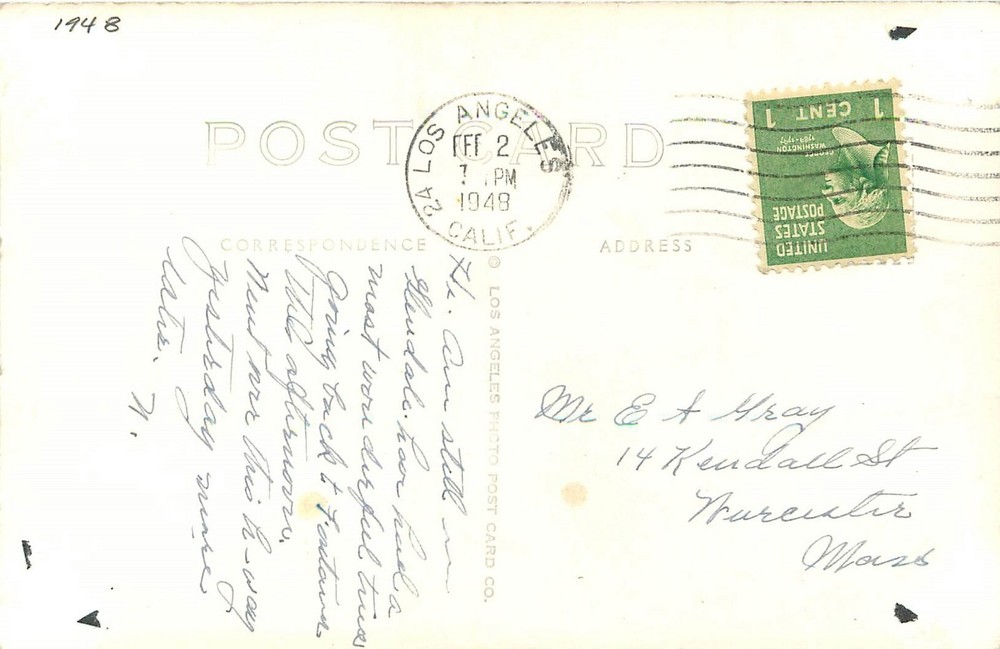 1948
POST CARD
LOS ANGELES
24
FEB 2
PM
1948
CALIF.
1 CENT 1
GEORGE
WASHINGTON
1789-1797
UNITED
STATES
POSTAGE
CORRESPONDENCE
ADDRESS
© LOS ANGELES PHOTO POST CARD CO.
Hi. Am still in
Glendale. have had a
most wonderful time
Going back to Fontana
This afternoon.
Went over this h-way
Yesterday more
later. N.
Mr E A Gray
14 Kendall St
Worcester
Mass